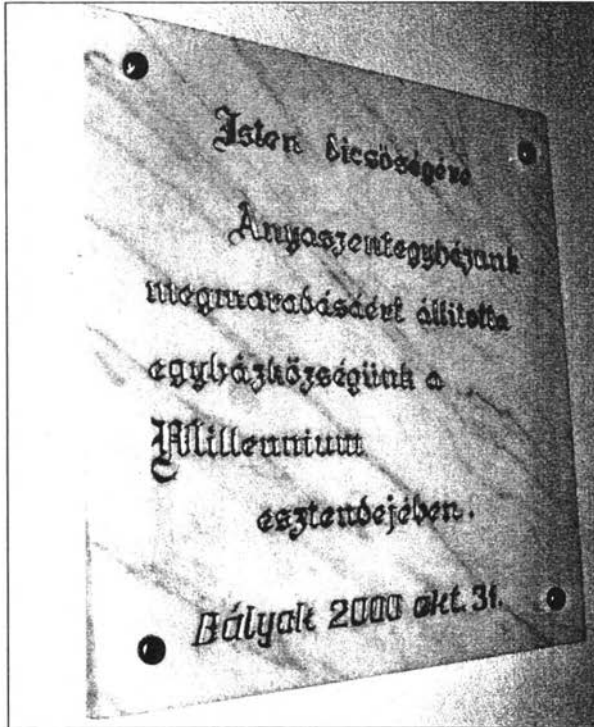 Isten dicsőségére
Anyaszentegyházunk
megmaradásáért állította
egyházközségünk a
Millennium
esztendejében.
Bályok 2000 okt. 31.